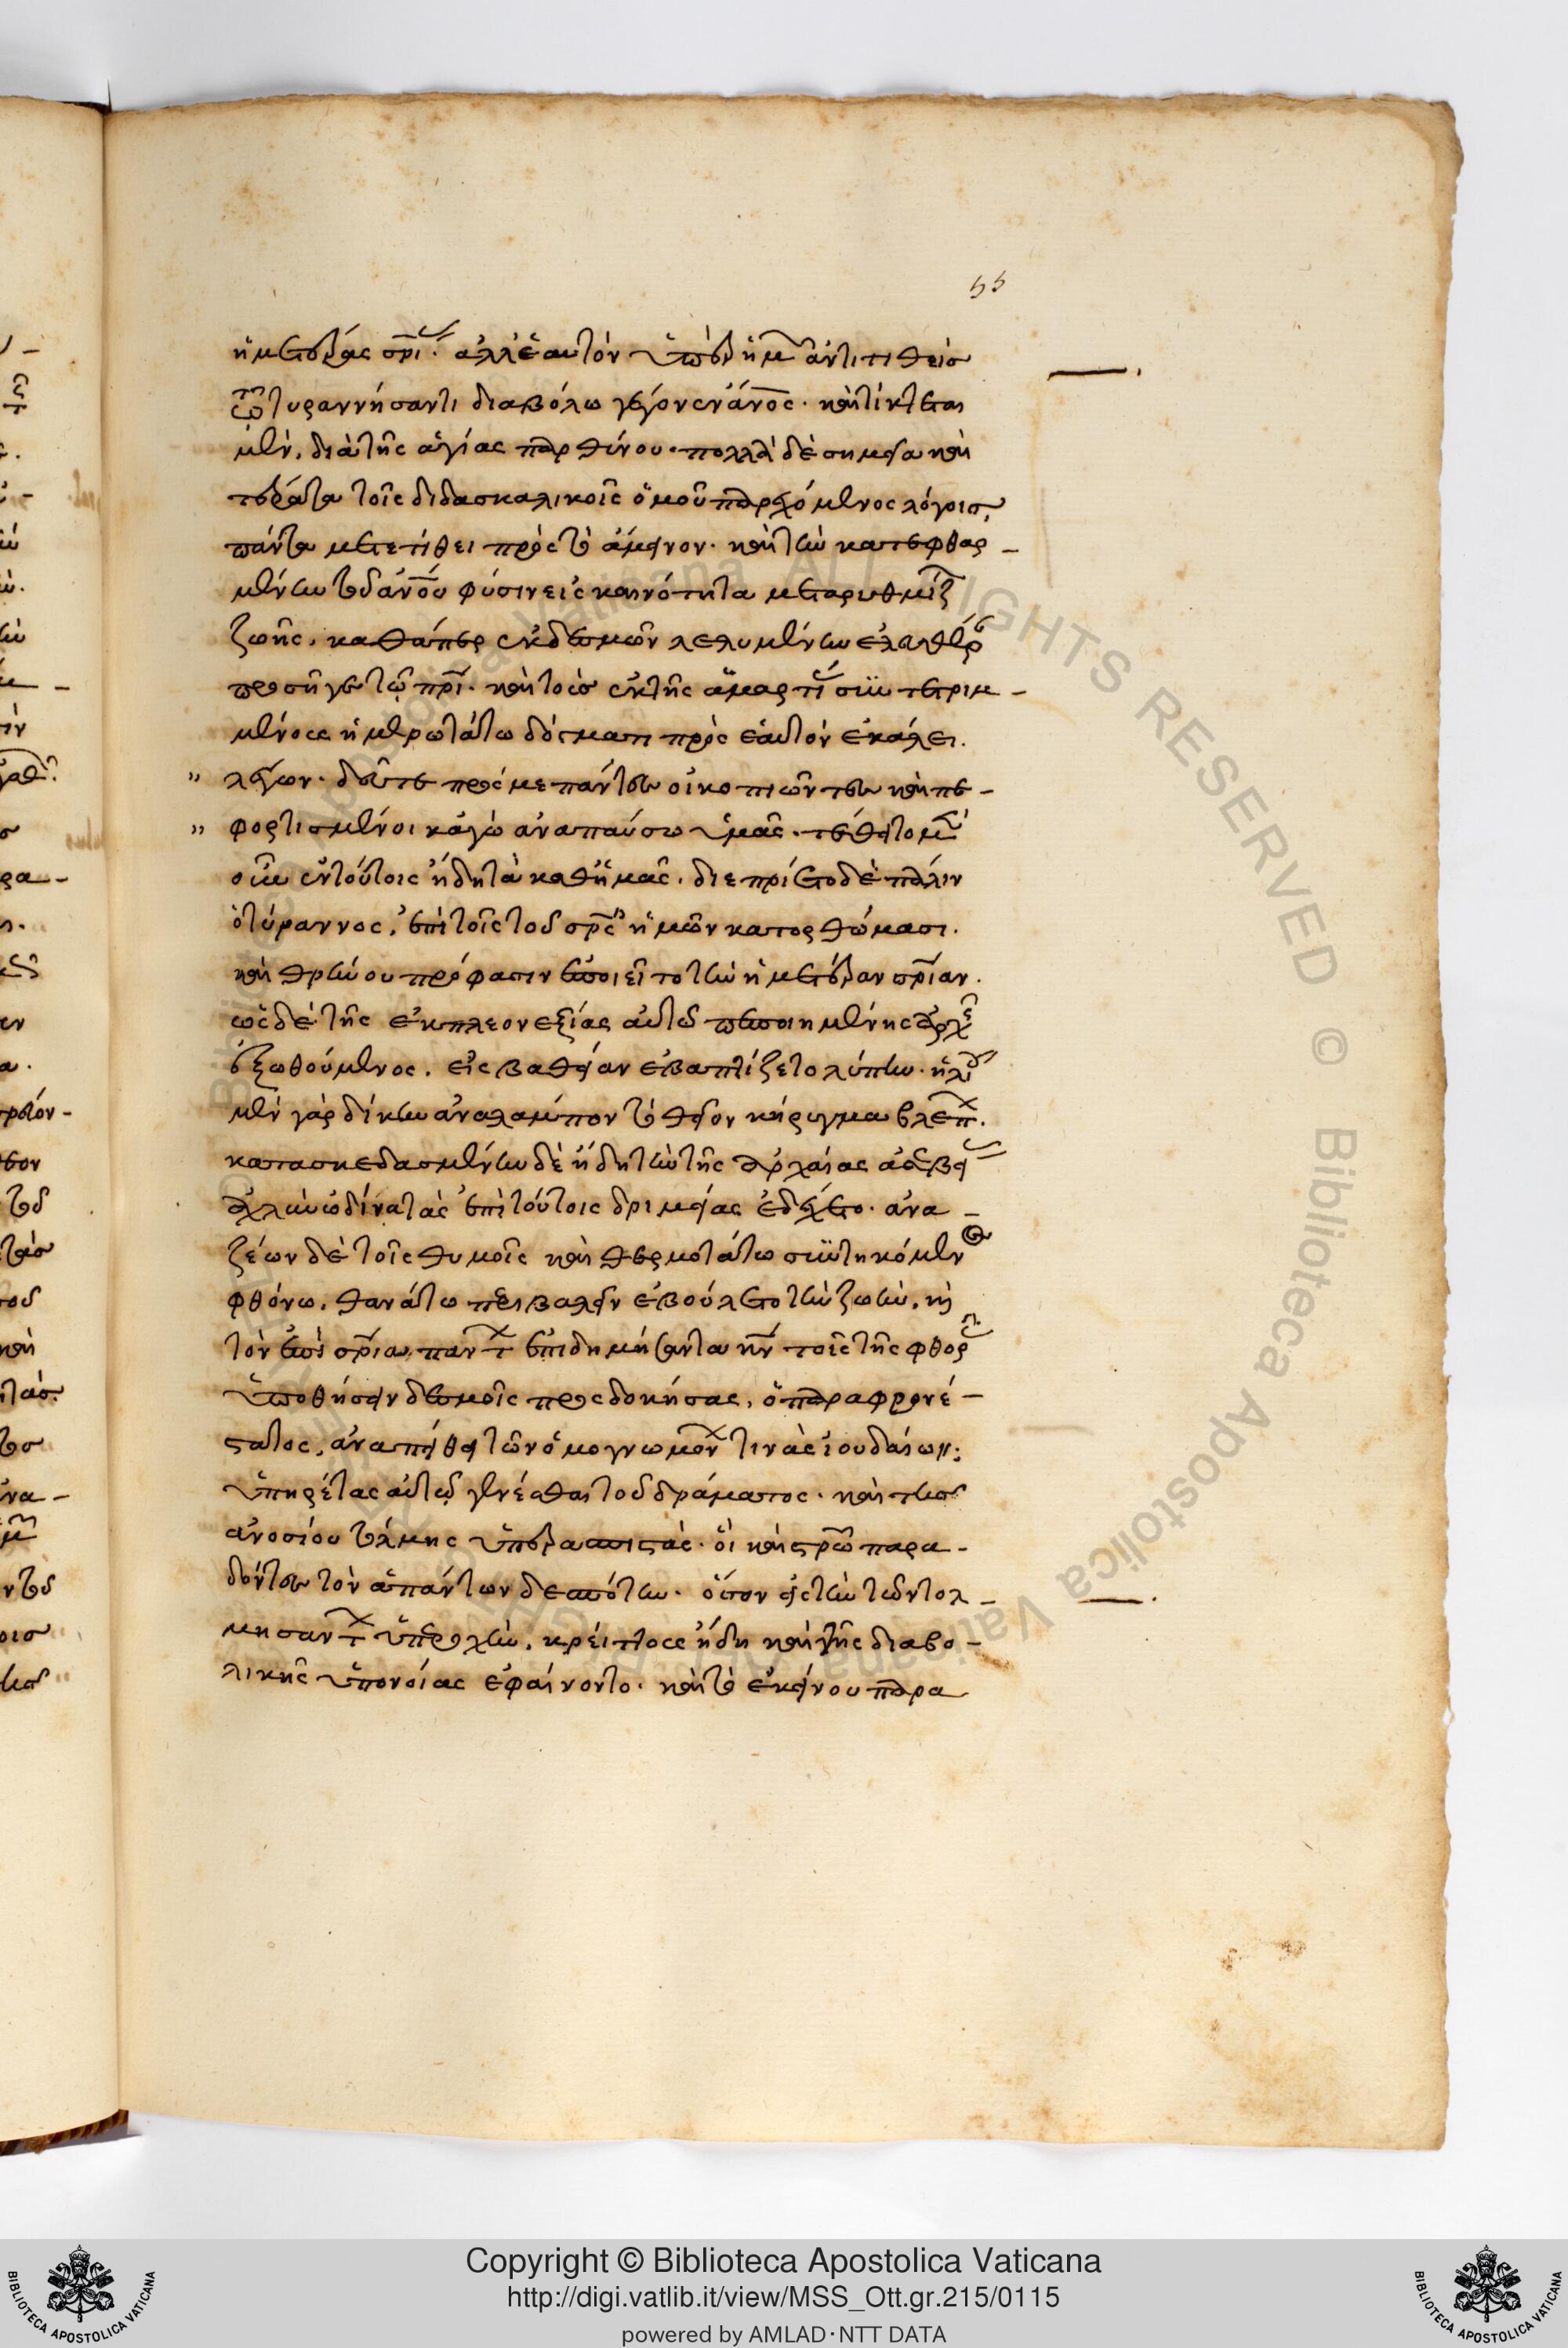 55
ἡμετέρας σρι. ἀλλ' ἑαυτὸν ὑπὲρ ἡμ ἀντιτιθεὶσ
τῶ τυραννήσαντι διαβόλω γέγονεν ἄνος. καὶ τίκτεται
μὲν, διὰ τῆς ἁγίας παρθένου. πολλὰ δὲ σημεῖα καὶ
τέρατα τοῖς διδασκαλικοῖς ὁμοῦ παρεχόμενος λόγοισ,
πάντα μετετίθει πρὸς τὸ ἄμεινον. καὶ τὴν κατεφθαρ-
μένην τοῦ ἀνου φύσιν εἰς καινότητα μεταρυθμίζ
ζωῆς. καθάπερ ἐκ δεσμῶν λελυμένην ἐλευθέρ
προσῆγε τῶ πρι. καὶ τοὺσ ἐκ τῆς ἁμαρτι συντετριμ-
μένους ἡμερωτάτω δόγματι πρὸς ἑαυτὸν ἐκάλει.
" λέγων. δεῦτε πρός με πάντες οἱ κοπιῶντες καὶ πε-
" φορτισμένοι κἀγὼ ἀναπαύσω ὑμᾶς.
οὖν ἐν τούτοις ἤδη τὰ καθ' ἡμᾶς. διεπρίετο δὲ πάλιν
ὁ τύραννος, ἐπὶ τοῖς τοῦ σρς ἡμῶν κατορθώμασι.
καὶ θρήνου πρόφασιν ἐποιεῖτο τὴν ἡμετέραν σρίαν.
ὡς δὲ τῆς ἐκ πλεονεξίας αὐτῶ πεποιημένης ἀρχῆς
ἐξωθούμενος, εἰς βαθεῖαν ἐβαπτίζετο λύπην. ἡλίου
μὲν γὰρ δίκην ἀναλαμπον τὸ θεῖον κήρυγμα βλεπ.
κατασκεδασμένην δὲ ἤδη τὴν τῆς ἀρχαίας ἀσεβεί
ἀχλὺν ὠδίνα τὰς ἐπὶ τούτοις δριμείας ἐδέχετο. ἀνα-
ζέων δὲ τοῖς θυμοῖς καὶ θερμοτάτω συντηκόμενος
φθόνω, θανάτω περιβαλεῖν ἐβούλετο τὴν ζωὴν, καὶ
τὸν ἐπὶ σρία παντ ἐπιδημήσαντα νῦν τοῖς τῆς φθορ
ὑποθήσειν δεσμοῖς προσδοκήσας, ὁ παραφρονέ-
στατος, ἀναπείθει τῶν ὁμογνωμον τινὰς ἰουδαίων.
ὑπηρέτας αὐτῶ γενέσθαι τοῦ δράματος. καὶ τῆσ
ἀνοσίου τόλμης ὑπερασπιστὰς. οἳ καὶ στρω παρα-
δόντες τὸν ἁπάντων δεσπότην. ὅσον εἰς τὴν τῶν τολ-
μησαντ ὑπεροχὴν, κρείττους ἤδη καὶ τῆς διαβο-
λικῆς ὑπονοίας ἐφαίνοντο. καὶ τὸ ἐκείνου παρα
Copyright © Biblioteca Apostolica Vaticana
http://digi.vatlib.it/view/MSS_Ott.gr.215/0115
powered by AMLAD·NTT DATA
BIBLIOTECA APOSTOLICA VATICANA
BIBLIOTECA APOSTOLICA VATICANA